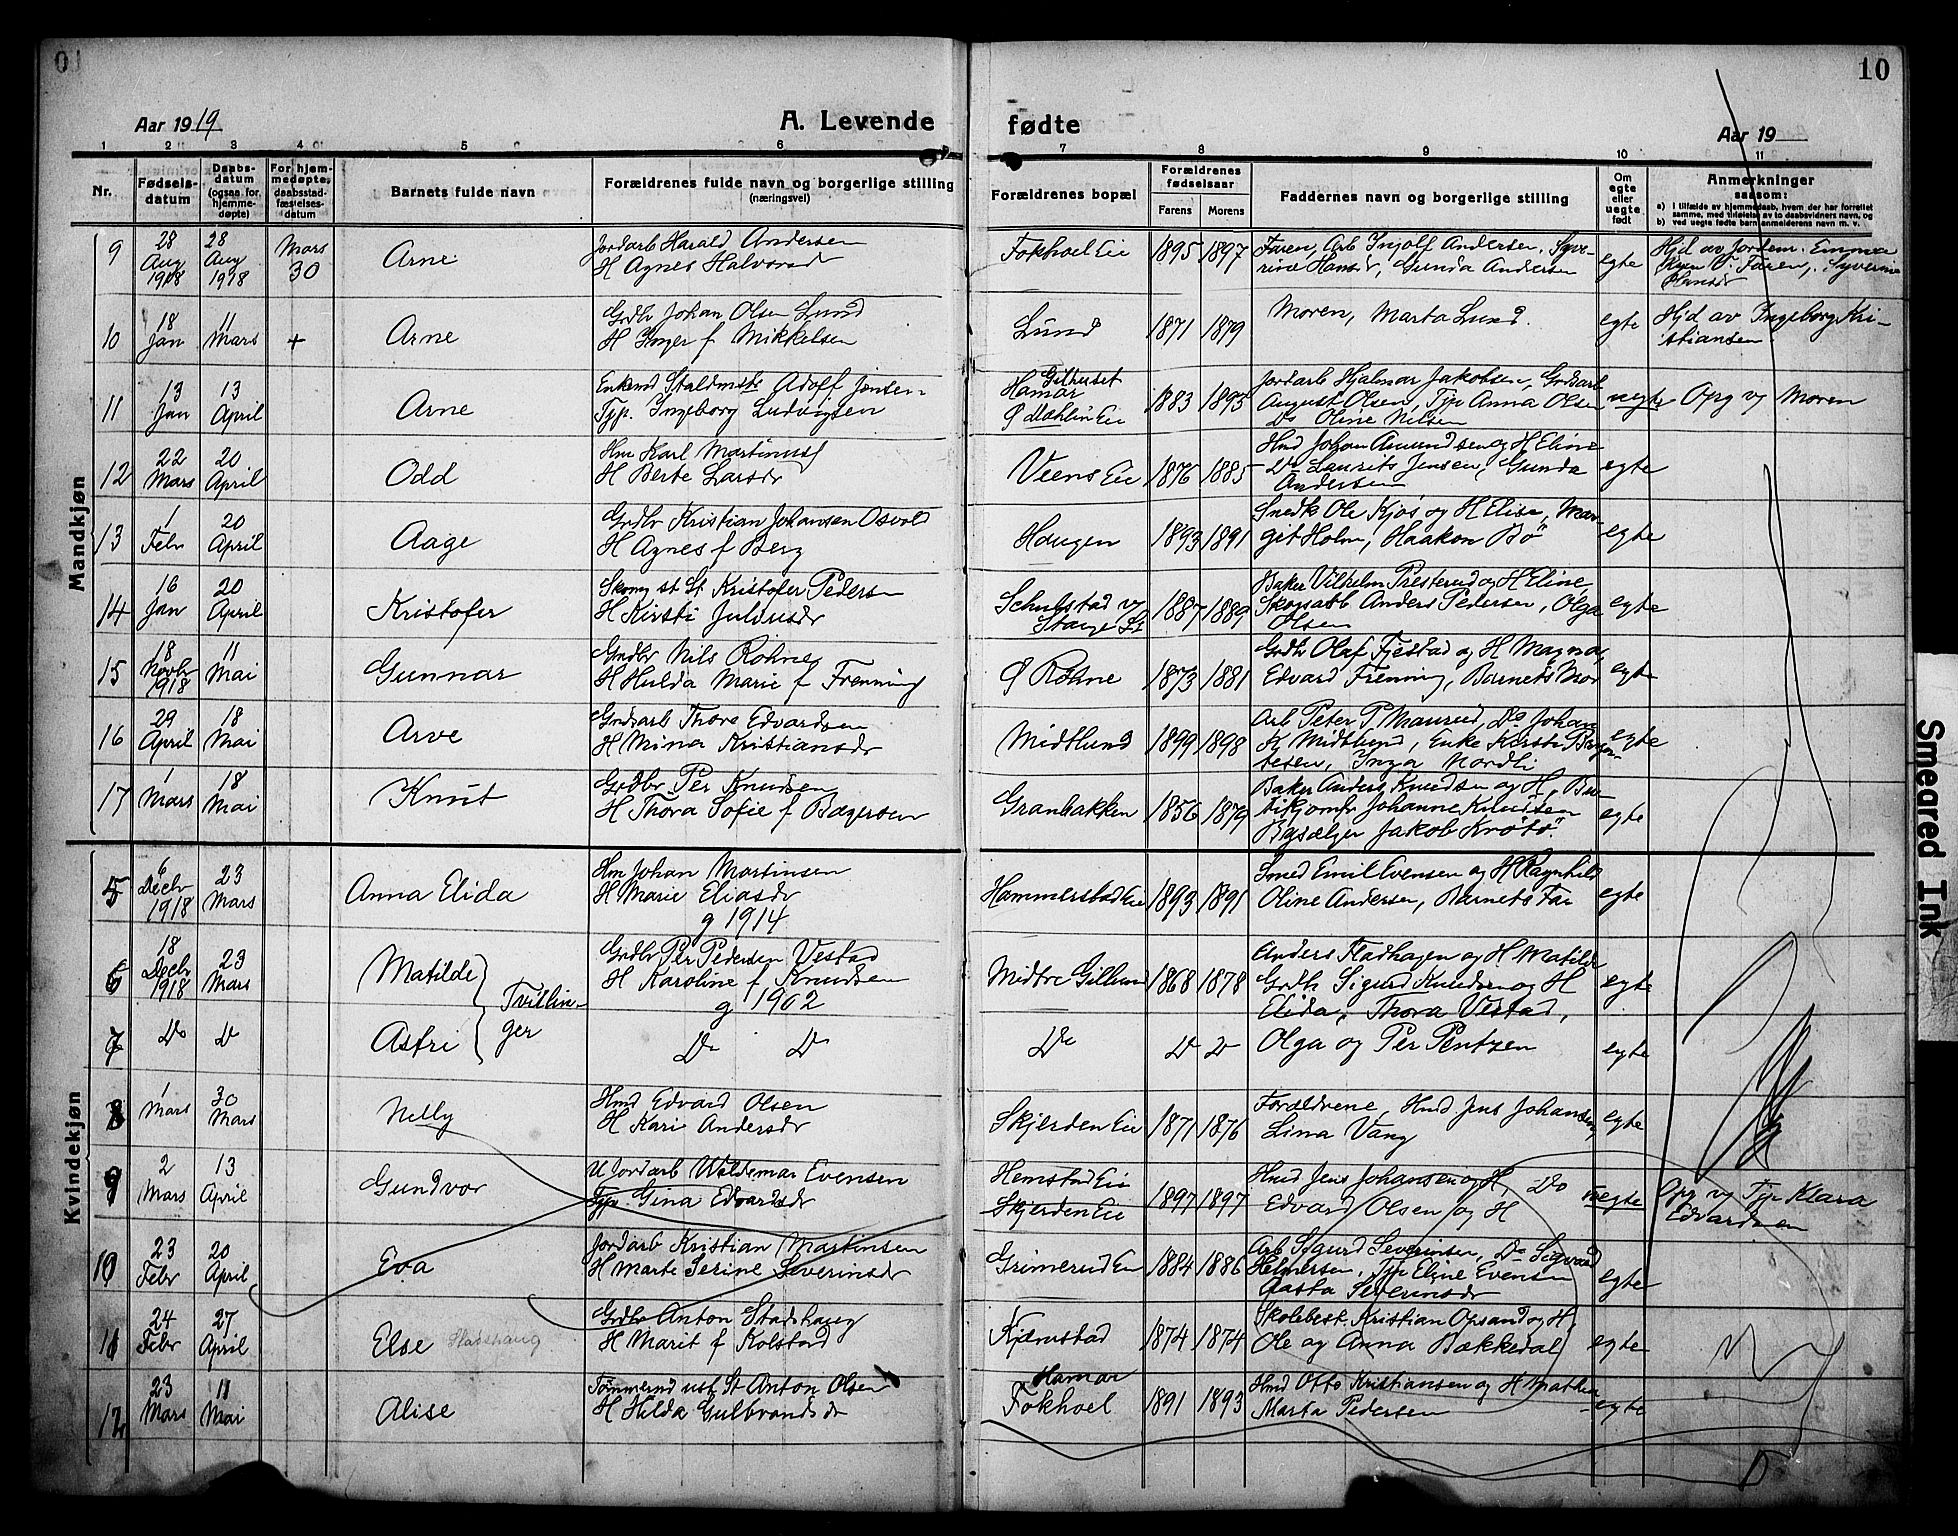 10
Aar 1919
A. Levende
fødte
Aar 19
1 2 3 4 5 6 7 8 9 10 11
Nr.
Fødsels-
datum
Daabs-
datum
(ogsaa for
hjemme-
døpte)
For hjem-
medøpte,
daabsstad-
fæstelses-
datum
Barnets fulde navn
Forældrenes fulde navn og borgerlige stilling
(næringsvei)
Forældrenes bopæl
Forældrenes
fødselsaar
Farens Morens
Faddernes navn og borgerlige stilling
Om
egte
eller
uegte
født
Anmerkninger
saasom:
a) i tilfælde av hjemmedaab, hvem der har forrettet
samme, med tilføielse av to daabsvidners navn, og
b) ved uegte fødte barn anmelderens navn m. v.
Mandkjøn
9 28 Aug 1918 28 Aug 1918 Mars 30 Arne
Jordarb Harald Andersen
H Agnes Halvorsdr
Fokhoel Eie 1895 1897
Faren, Arb Ingolf Andersen, Syve-
rine Hansdr, Gunda Andersen
egte
Hjd av Jordem. Emma
V. Faren, Syverine
Hansdr
10 18 Jan 11 Mars + Arne
Grdbr Johan Olsen Lund
H Inger f Mikkelsen
Lund 1871 1879
Moren, Marta Lund.
egte
Hjd av Ingeborg Kri-
stiansen
11 13 Jan 13 April Arne
Enkemd Staldmstr Adolf Jensen
Typ. Ingeborg Ludvigsen
Gilhuset
Hamar
Ø Mæhlum Eie 1883 1893
Jordarb Hjalmar Jakobsen, Grdsarb
August Olsen, Typ Anna Olsen
Do Oline Nilsen
uegte
Opg v Moren
12 22 Mars 20 April Odd
Hm Karl Martinus
H Berte Larsdr
Veens Eie 1876 1885
Hmd Johan Amundsen og H Eline
Do Laurits Jensen, Gunda
Andersen
egte
13 1 Febr 20 April Aage
Grdbr Kristian Johansen Osvold
H Agnes f Berg
Haugen 1893 1891
Snedk Ole Kjøs og H Elise, Mar-
git Holm, Haakon Bö
egte
14 16 Jan 20 April Kristofer
Skomg st St Kristofer Pedersen
H Kirsti Juliusdr
Schulstad v
Stange St 1887 1889
Baker Vilhelm Presterud og H Eline,
Skogsarb Anders Pedersen, Olga
Olsen
egte
15 18 Novbr 1918 11 Mai Gunnar
Grdbr Nils Rohne
H Hulda Marie f Frenning
Ø Rohne 1873 1881
Grdbr Olaf Fjestad og H Magna,
Edvard Frenning, Barnets Mor
egte
16 29 April 18 Mai Arve
Grdsarb Thore Edvardsen
H Mina Kristiansdr
Midtlund 1899 1898
Arb Peter P. Maurud, Do Johan
K Midtlund, Enke Kersti Bergen-
tesen, Inga Nordli
egte
17 1 Mars 18 Mai Knut
Grdbr Per Knudsen
H Thora Sofie f Bagersen
Granbakken 1856 1879
Baker Anders Knudsen og H, Bu-
tikjomfr Johanne Knudsen
Bysælger Jakob Krötö.
egte
Kvindekjøn
5 6 Decbr 1918 23 Mars Anna Elida
Hm Johan Martinsen
H Marie Eliasdr
g 1914
Hammerstad Eie 1893 1891
Smed Emil Evensen og H Ragnhild
Oline Andersen, Barnets Far
egte
6 18 Decbr 1918 23 Mars Matilde
Tvillin-
ger
Grdbr Per Pedersen Vestad
H Karoline f Knudsen
g 1902
Midtre Gillund 1868 1878
Anders Fladhagen og H Matilde
Grdbr Sigurd Knudsen og H
Elida, Thora Vestad,
egte
7 Do Do Astri
Do Do
Do Do Do
Olga og Per Pentzen
egte
8 1 Mars 30 Mars Nelly
Hmd Edvard Olsen
H Kari Andersdr
Skjerden Eie 1871 1876
Forældrene, Hmd Jens Johansen,
Lina Vang
egte
9 2 Mars 13 April Gundvor
U Jordarb Waldemar Evensen
Typ. Gina Edvardsdr
Hemstad Eie
Skjerden Eie 1897 1897
Hmd Jens Johansen og H, Do
Edvard Olsen og H
uegte
Opg v Typ Klara
Edvardsen
10 23 Febr 20 April Eva
Jordarb Kristian Martinsen
H Marte Serine Severinsdr
Grimerud Eie 1884 1886
Arb Sigurd Severinsen, Do Sigvard
Helmersen, Typ Eline Evensen
Aasta Severinsdr
egte
11 24 Febr 27 April Else Stadshaug
Grdbr Anton Stadshaug
H Marit f Kolstad
Kjernstad 1874 1874
Skolebest. Kristian Opsand og H,
Ole og Anna Bækkedal
egte
12 23 Mars 11 Mai Alise
Tømmermd ust St Anton Olsen
H Hilda Gulbrandsdr
Hamar
Fokhoel 1891 1893
Hmd Otto Kristiansen og H Mathea
Marta Pedersen
egte
Smeared Ink